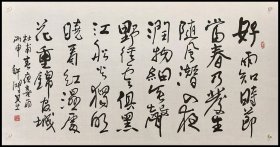 好雨知時節
當春乃發生
随風潜入夜
潤物細無聲
野徑雲俱黑
江船火獨明
曉看紅濕處
花重錦官城
杜甫春夜喜雨
丙申